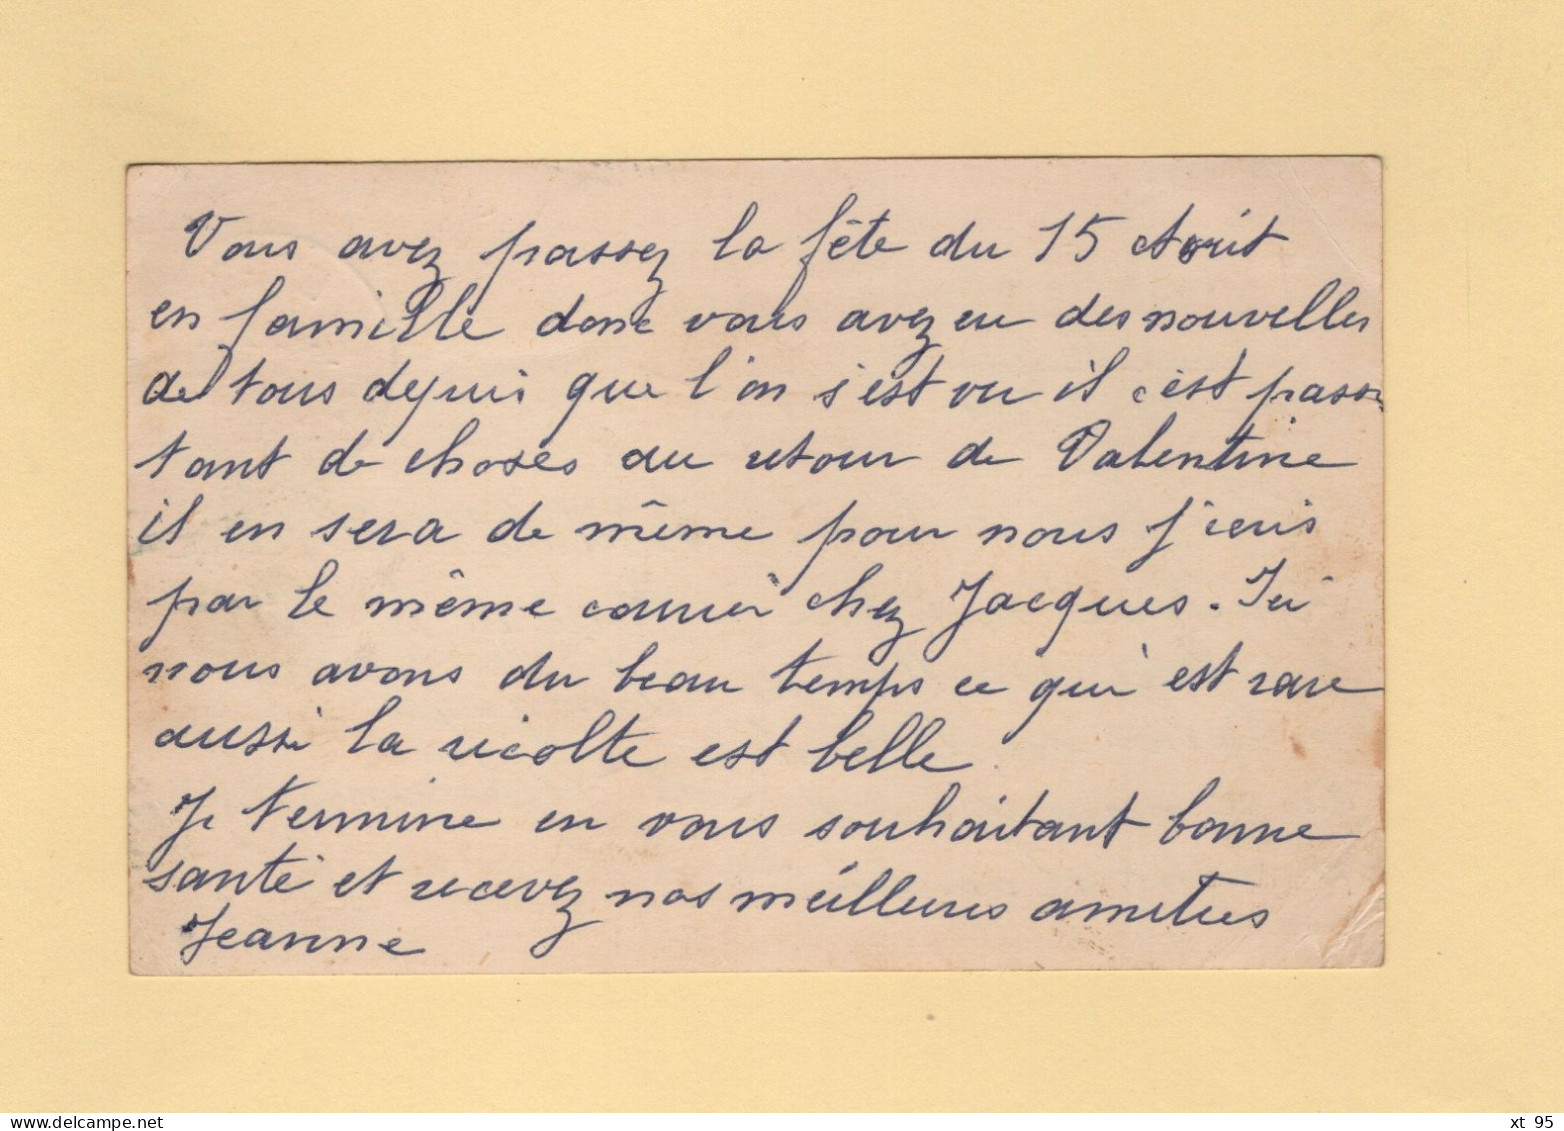 Vous avez passez la fête du 15 Août
en famille donc vous avez eu des nouvelles
de tous depuis que l'on s'est vu il c'est passe
tant de choses au retour de Valentine
il en sera de même pour nous j'ecris
par le même courrier chez Jacques. Ici
nous avons du beau temps ce qui est rare
aussi la récolte est belle
Je termine en vous souhaitant bonne
santé et recevez nos meilleures amitiés
Jeanne
www.delcampe.net
xt 95